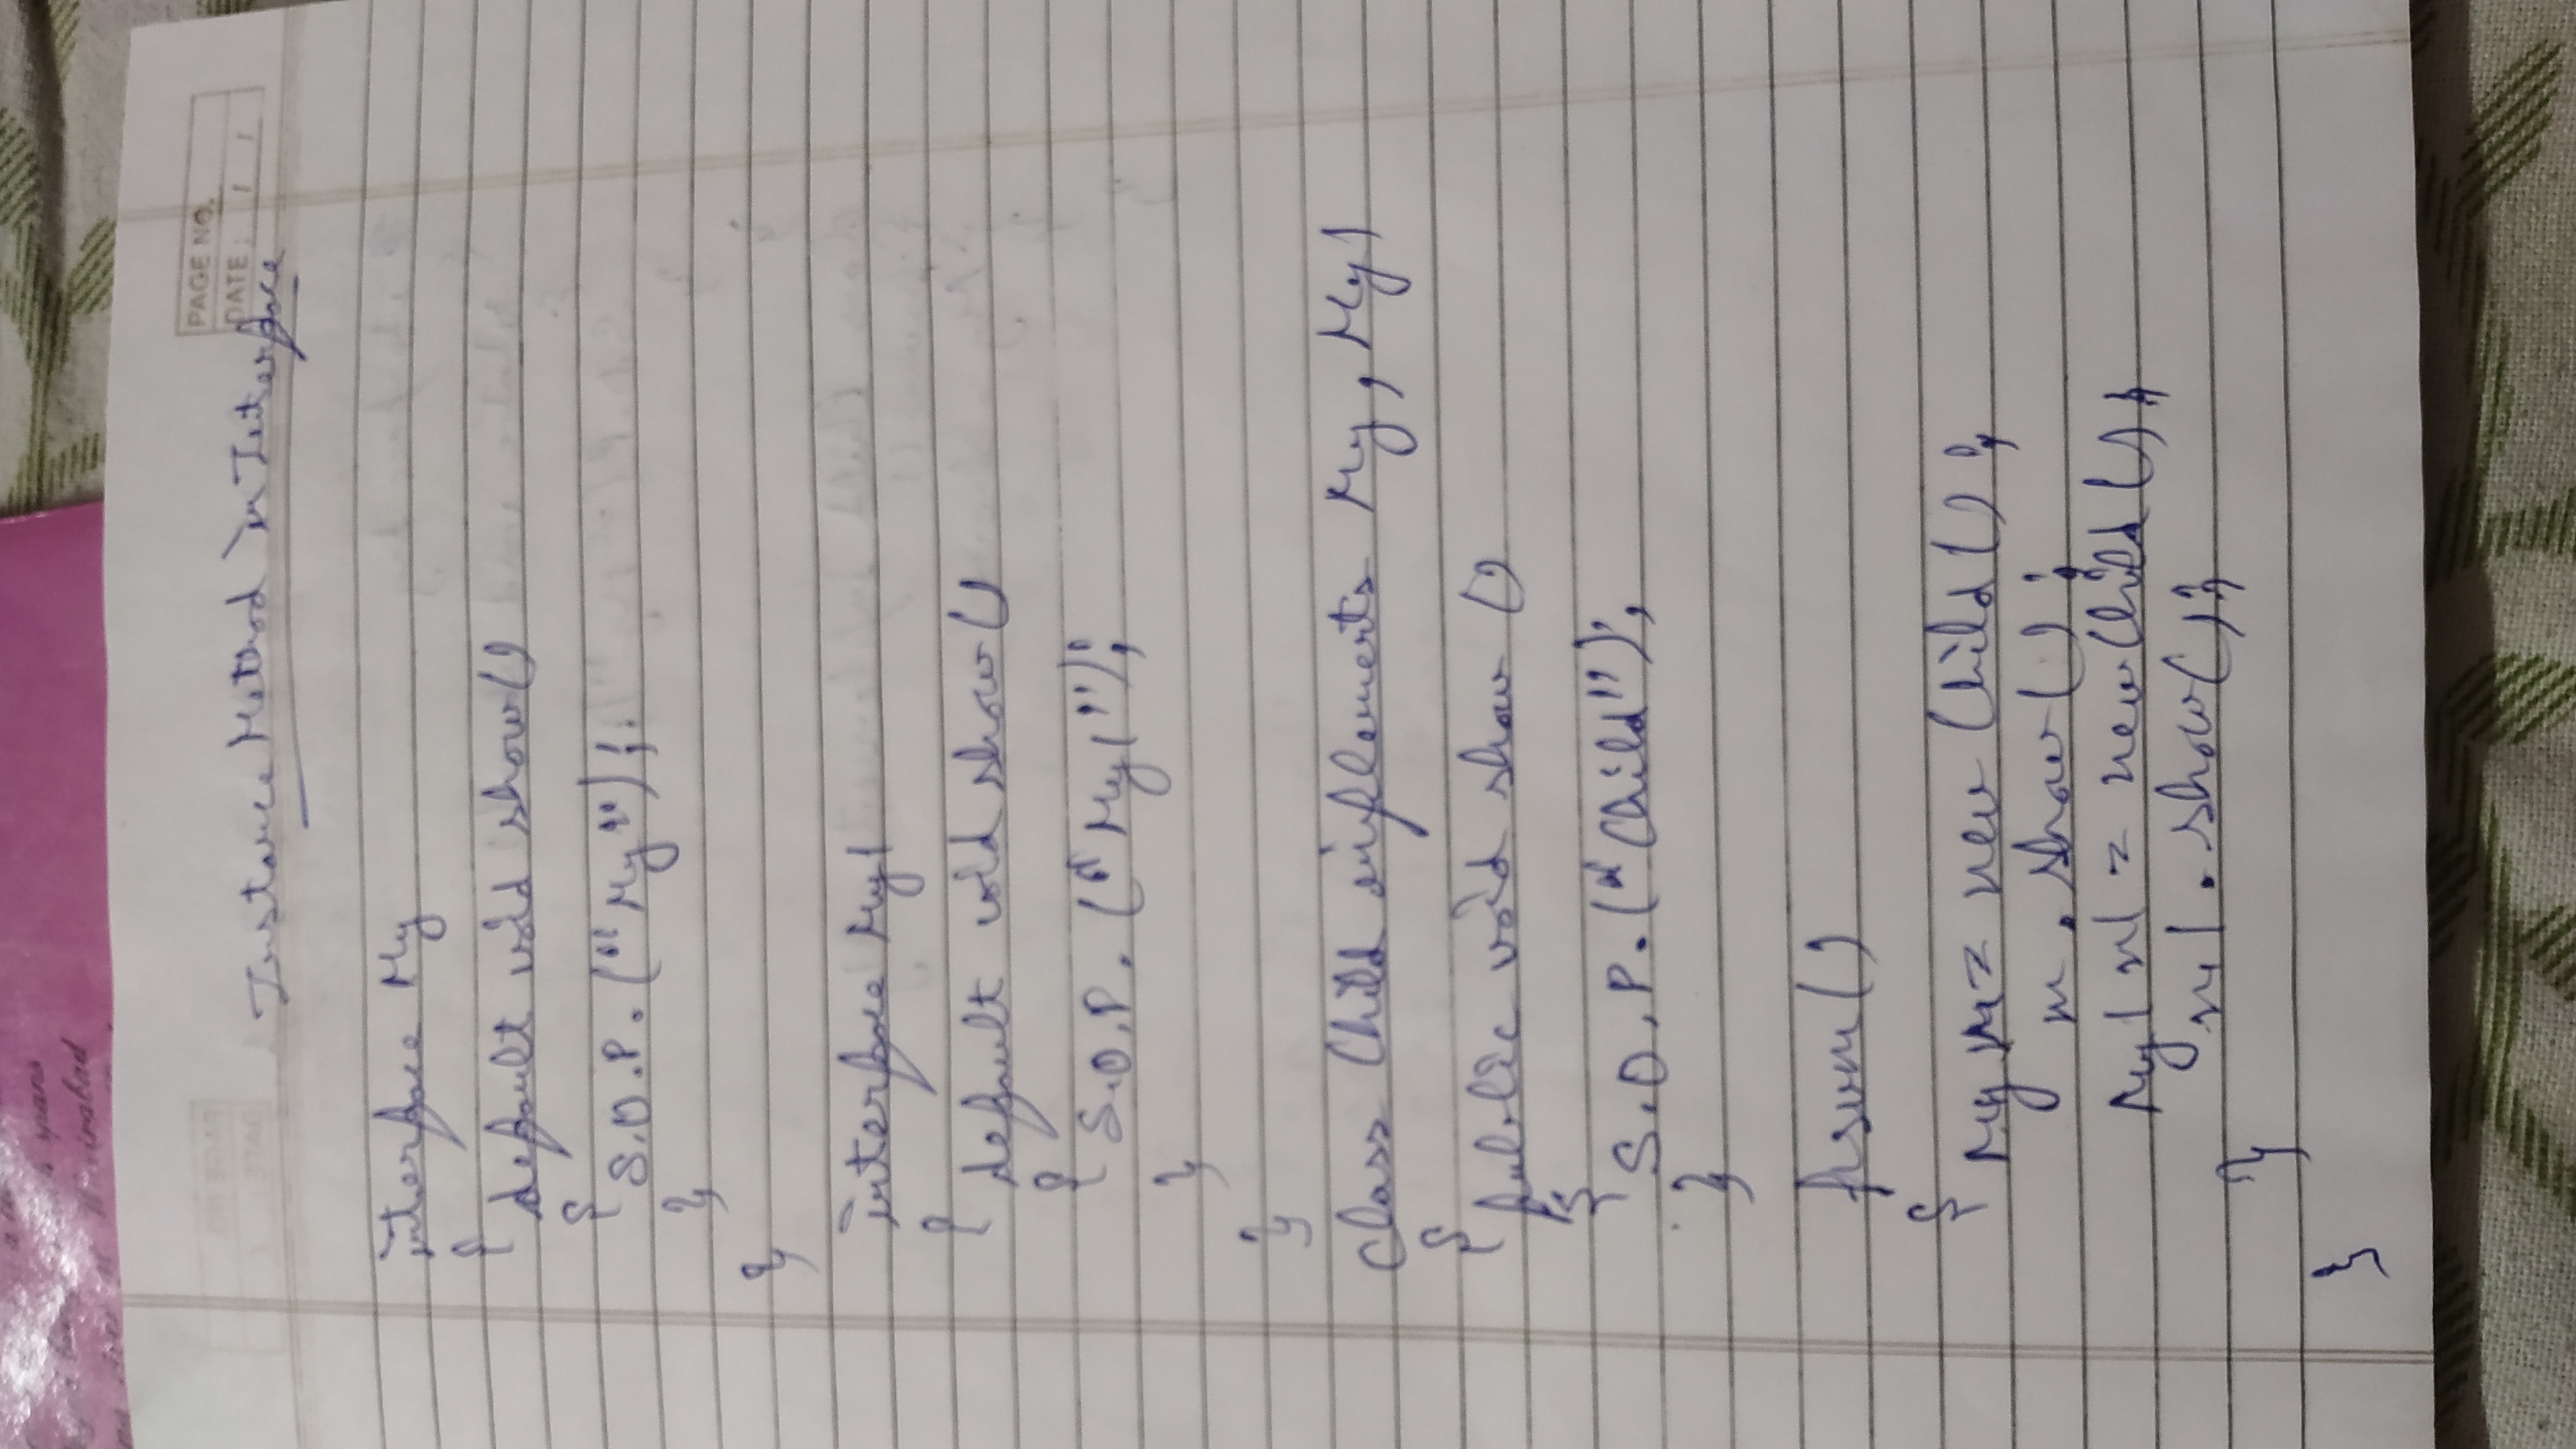 spans
at Wazirabad
PAGE NO.
DATE: / /
Instance Method in Interface
interface My
{
default void show()
{
S.O.P. ("My");
}
}
interface My1
{
default void show()
{
S.O.P. ("My1");
}
}
class Child implements My, My1
{
public void show ()
{
S.O.P. ("Child");
}
psvm()
{
My m = new Child();
m.show();
My1 m1 = new Child();
m1.show();
}
}